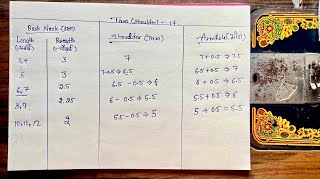 Tiara (Shoulder) - 14
Back Neck (Pan) Shoulder (Tiara) Armhole (File)
Length Breadth
3,4 3 7 7+0.5 ⇒ 7.5
5 3 7-0.5 ⇒ 6.5 6.5+0.5 ⇒ 7
6,7 2.5 6.5 - 0.5 ⇒ 6 6 + 0.5 ⇒ 6.5
8,9 2.25 6 - 0.5 ⇒ 5.5 5.5+0.5 ⇒ 6
10,11,12 2 5.5 - 0.5 ⇒ 5 5 + 0.5 = 5.5